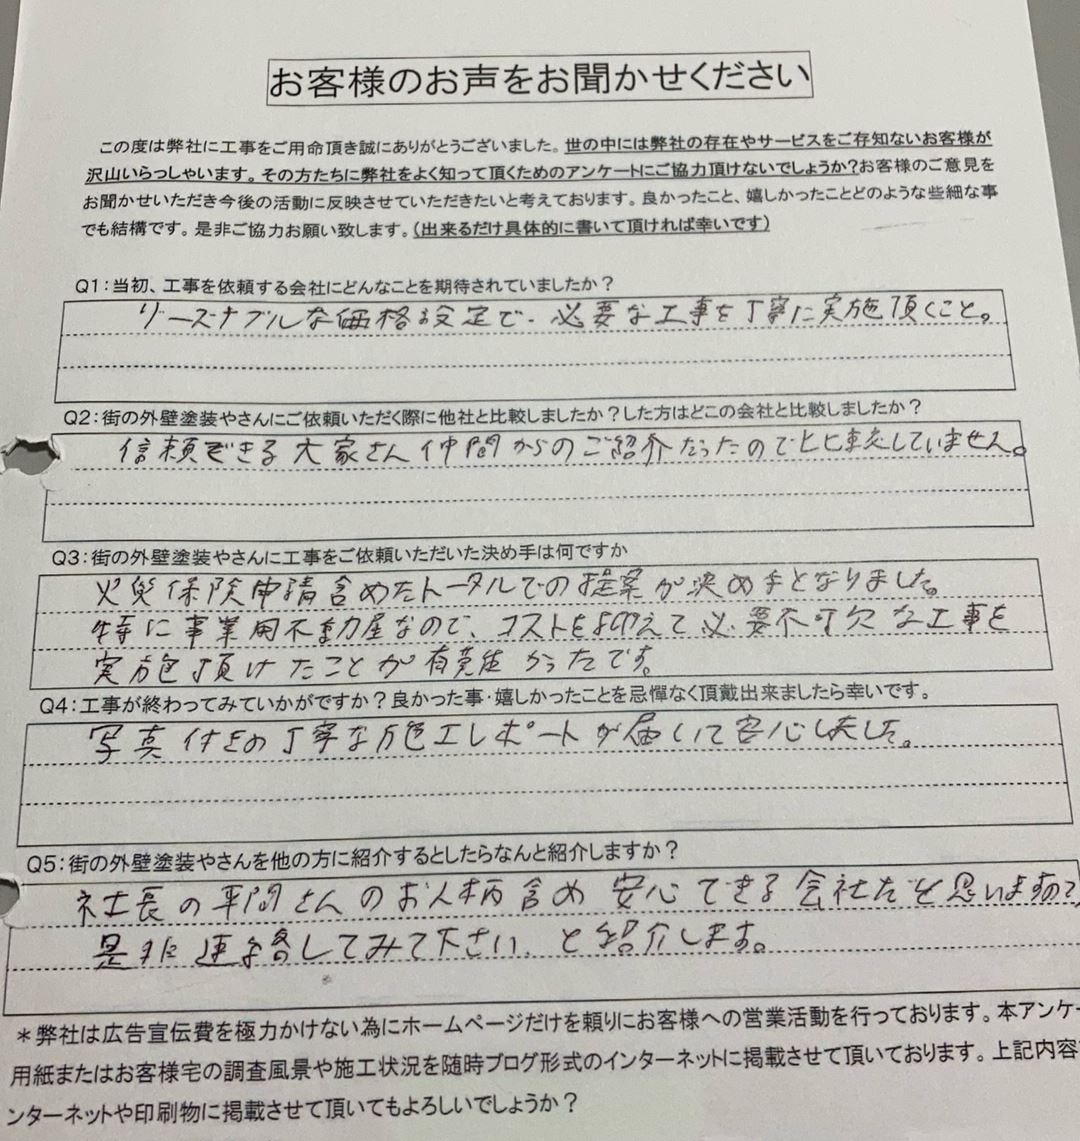 お客様のお声をお聞かせください
この度は弊社に工事をご用命頂き誠にありがとうございました。世の中には弊社の存在やサービスをご存知ないお客様が
沢山いらっしゃいます。その方たちに弊社をよく知って頂くためのアンケートにご協力頂けないでしょうか？お客様のご意見を
お聞かせいただき今後の活動に反映させていただきたいと考えております。良かったこと、嬉しかったことどのような些細な事
でも結構です。是非ご協力お願い致します。（出来るだけ具体的に書いて頂ければ幸いです）
Q1：当初、工事を依頼する会社にどんなことを期待されていましたか？
リーズナブルな価格設定で、必要な工事を丁寧に実施頂くこと。
Q2：街の外壁塗装やさんにご依頼いただく際に他社と比較しましたか？した方はどこの会社と比較しましたか？
信頼できる大家さん仲間からのご紹介だったので比較していません。
Q3：街の外壁塗装やさんに工事をご依頼いただいた決め手は何ですか
火災保険申請含めたトータルでの提案が決め手となりました。
特に事業用不動産なので、コストを抑えて必要不可欠な工事を
実施頂けたことが有難かったです。
Q4：工事が終わってみていかがですか？良かった事・嬉しかったことを忌憚なく頂戴出来ましたら幸いです。
写真付きの丁寧な施工レポートが届いて安心しました。
Q5：街の外壁塗装やさんを他の方に紹介するとしたらなんと紹介しますか？
社長の平間さんのお人柄含め安心できる会社だと思いますので、
是非連絡してみて下さい、と紹介します。
＊弊社は広告宣伝費を極力かけない為にホームページだけを頼りにお客様への営業活動を行っております。本アンケー
用紙またはお客様宅の調査風景や施工状況を随時ブログ形式のインターネットに掲載させて頂いております。上記内容
ンターネットや印刷物に掲載させて頂いてもよろしいでしょうか？